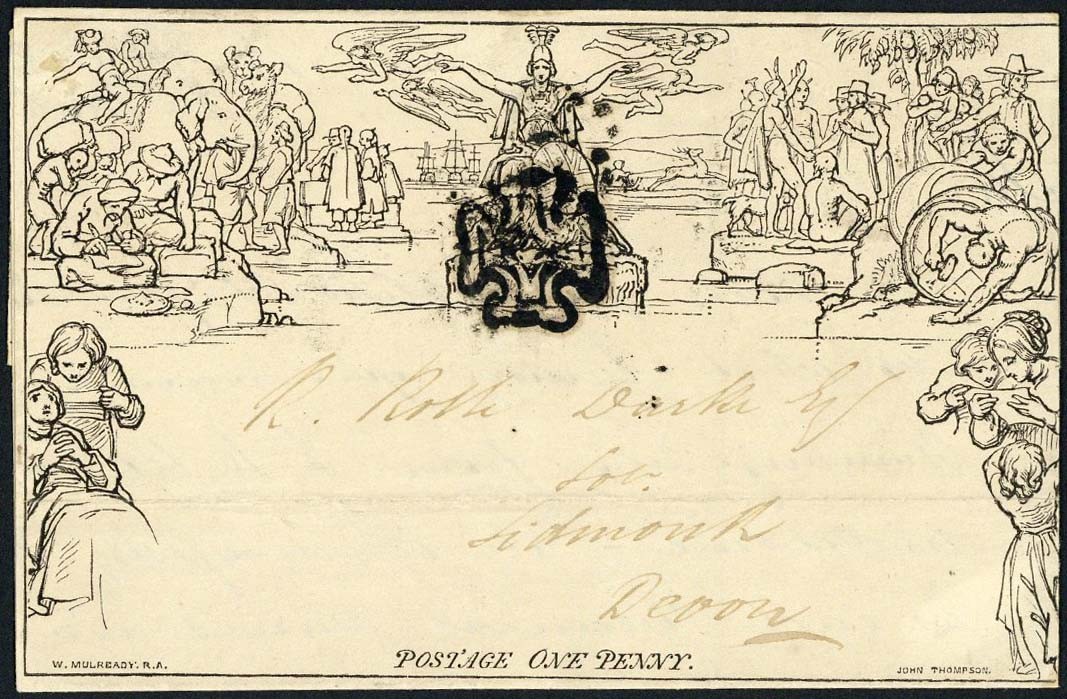 R. Rolle Darke Esq
Solr
Sidmouth
Devon
W. MULREADY. R.A.
POSTAGE ONE PENNY.
JOHN THOMPSON.